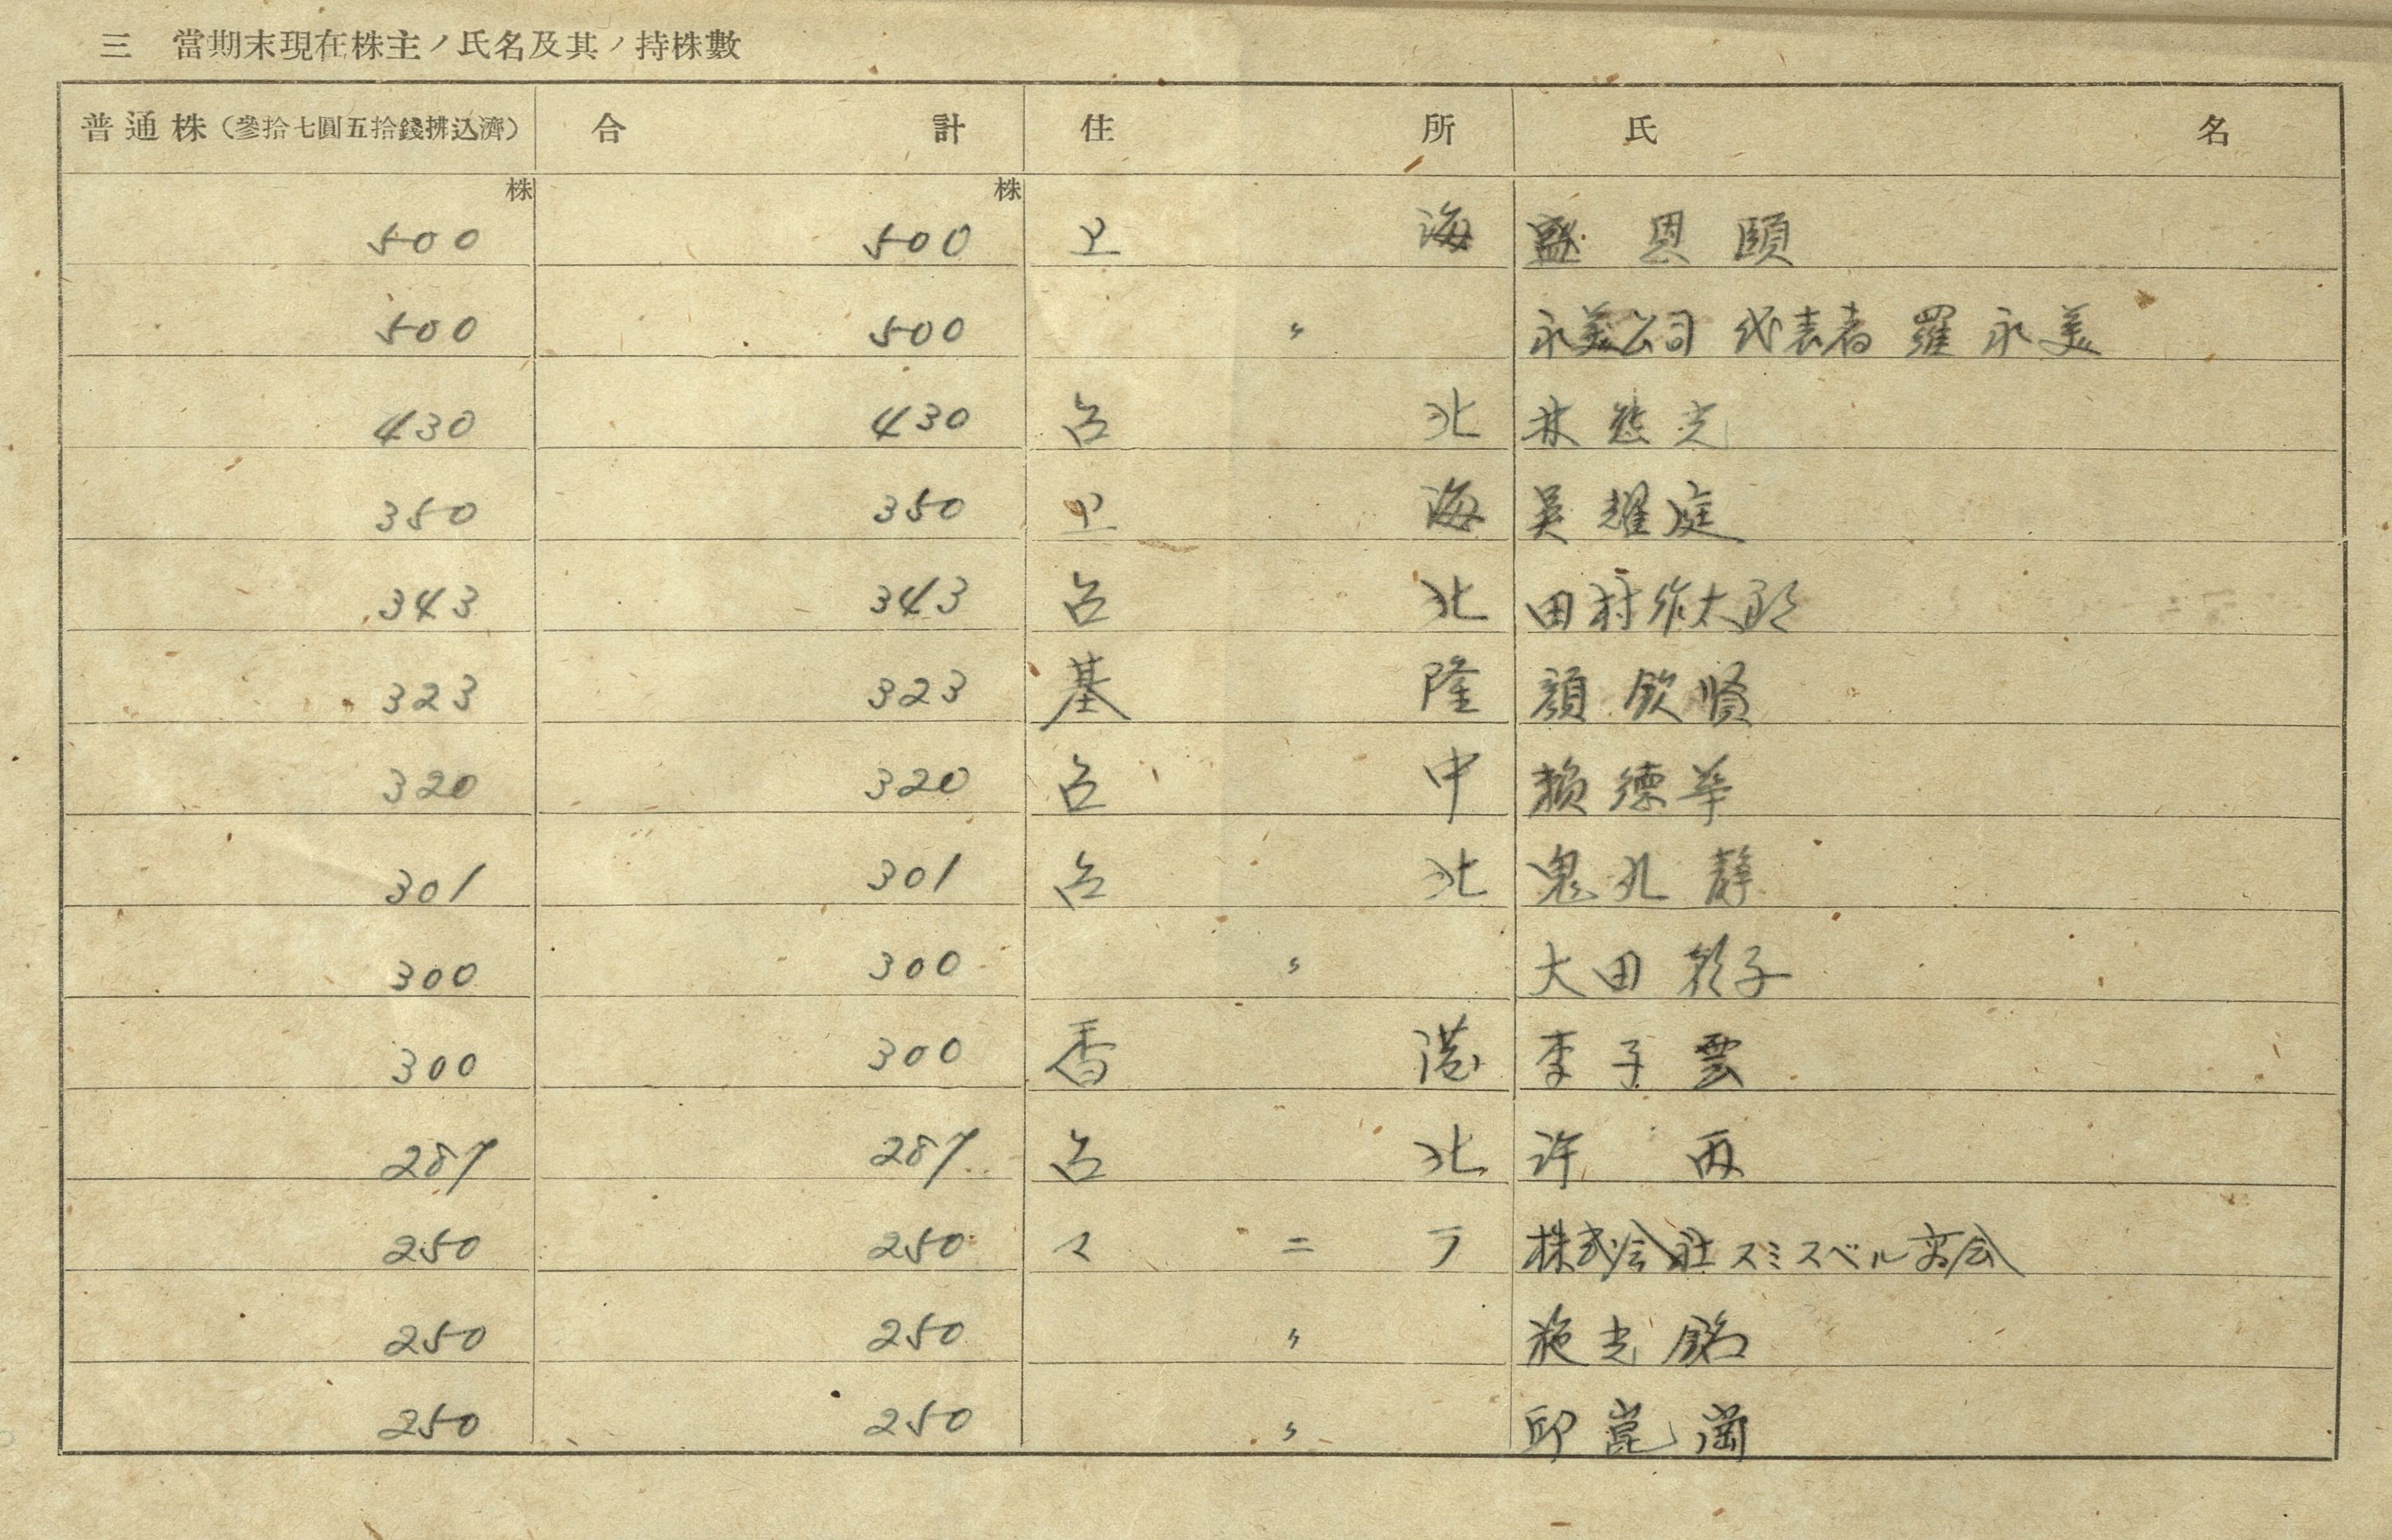 三 當期末現在株主ノ氏名及其ノ持株數
普通株(參拾七圓五拾錢拂込濟) 合計 住所 氏名
株 株
500 500 上海 盛恩頤
500 500 〃 永美公司 代表者 羅永美
430 430 台北 林熊光
350 350 上海 吳耀庭
343 343 台北 田村作太郎
323 323 基隆 顔欽賢
320 320 台中 賴德華
301 301 台北 鬼丸静
300 300 〃 大田 子
300 300 香港 李子雲
287 287 台北 許丙
250 250 マニラ 株式会社スミスベル商会
250 250 〃 施光銘
250 250 〃 邱崑崗